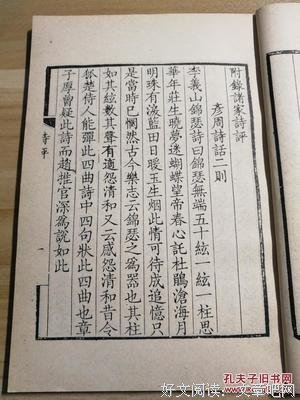 附錄諸家詩評
彥周詩話二則
李義山錦瑟詩曰錦瑟無端五十絃一絃一柱思
華年莊生曉夢迷蝴蝶望帝春心託杜鵑滄海月
明珠有淚藍田日暖玉生烟此情可待成追憶只
是當時已惘然古今樂志云錦瑟之為器也其柱
如其絃數其聲有適怨清和又云感怨清和昔令
狐楚侍人能彈此四曲詩中四句狀此四曲也章
子厚曾疑此詩而趙推官深為說如此
詩評
一
孔夫子旧书网
好文阅读：文章吧网